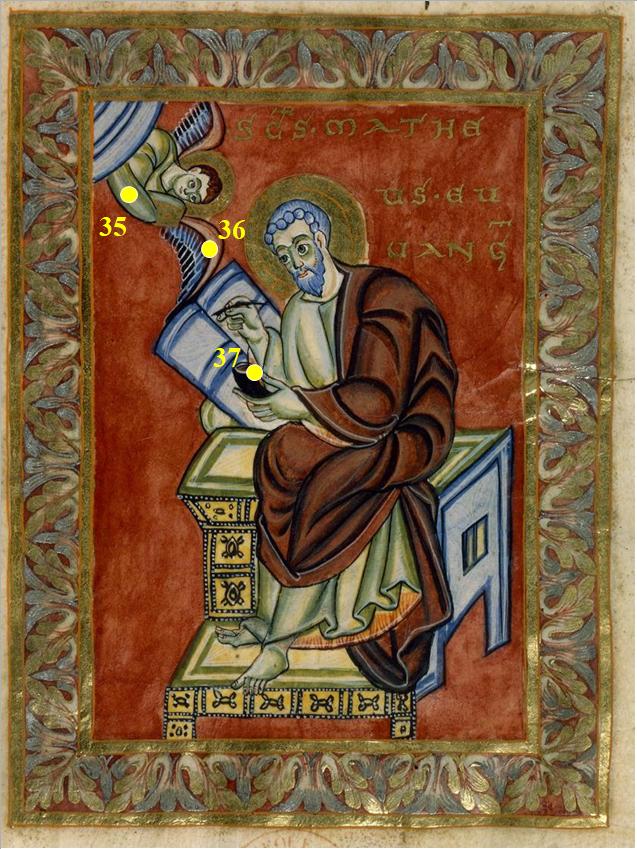 SC̅S · MATHE
US · EU
UANG̅
35
36
37